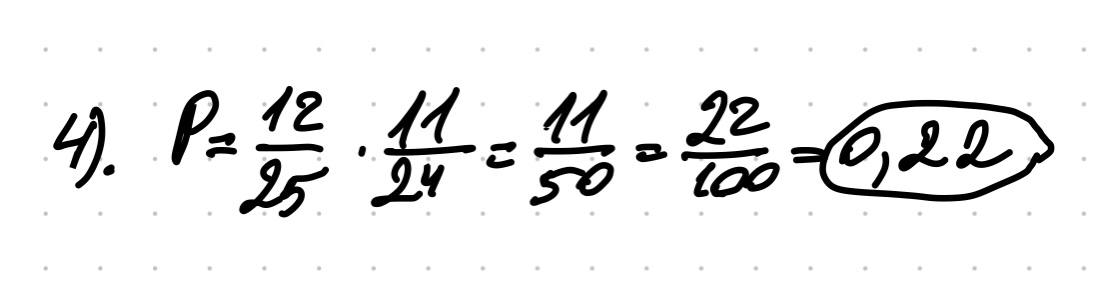 4). P = 12/25 · 11/24 = 11/50 = 22/100 = 0,22